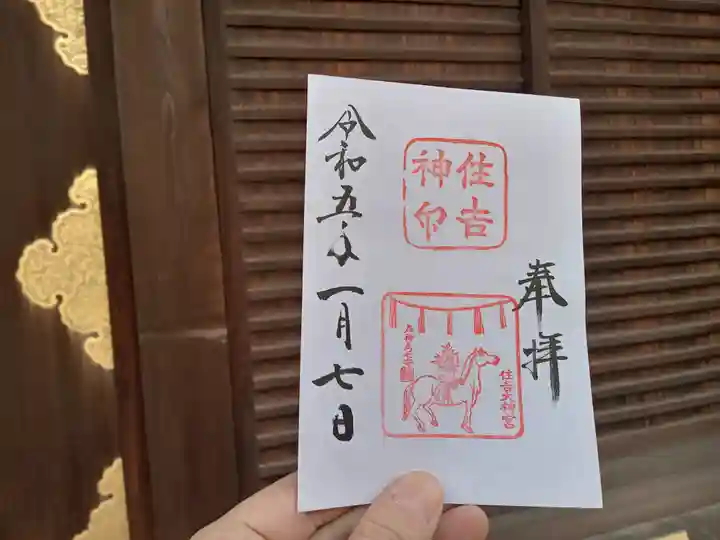 奉拝
住吉
神印
住吉大神宮
令和五年一月七日